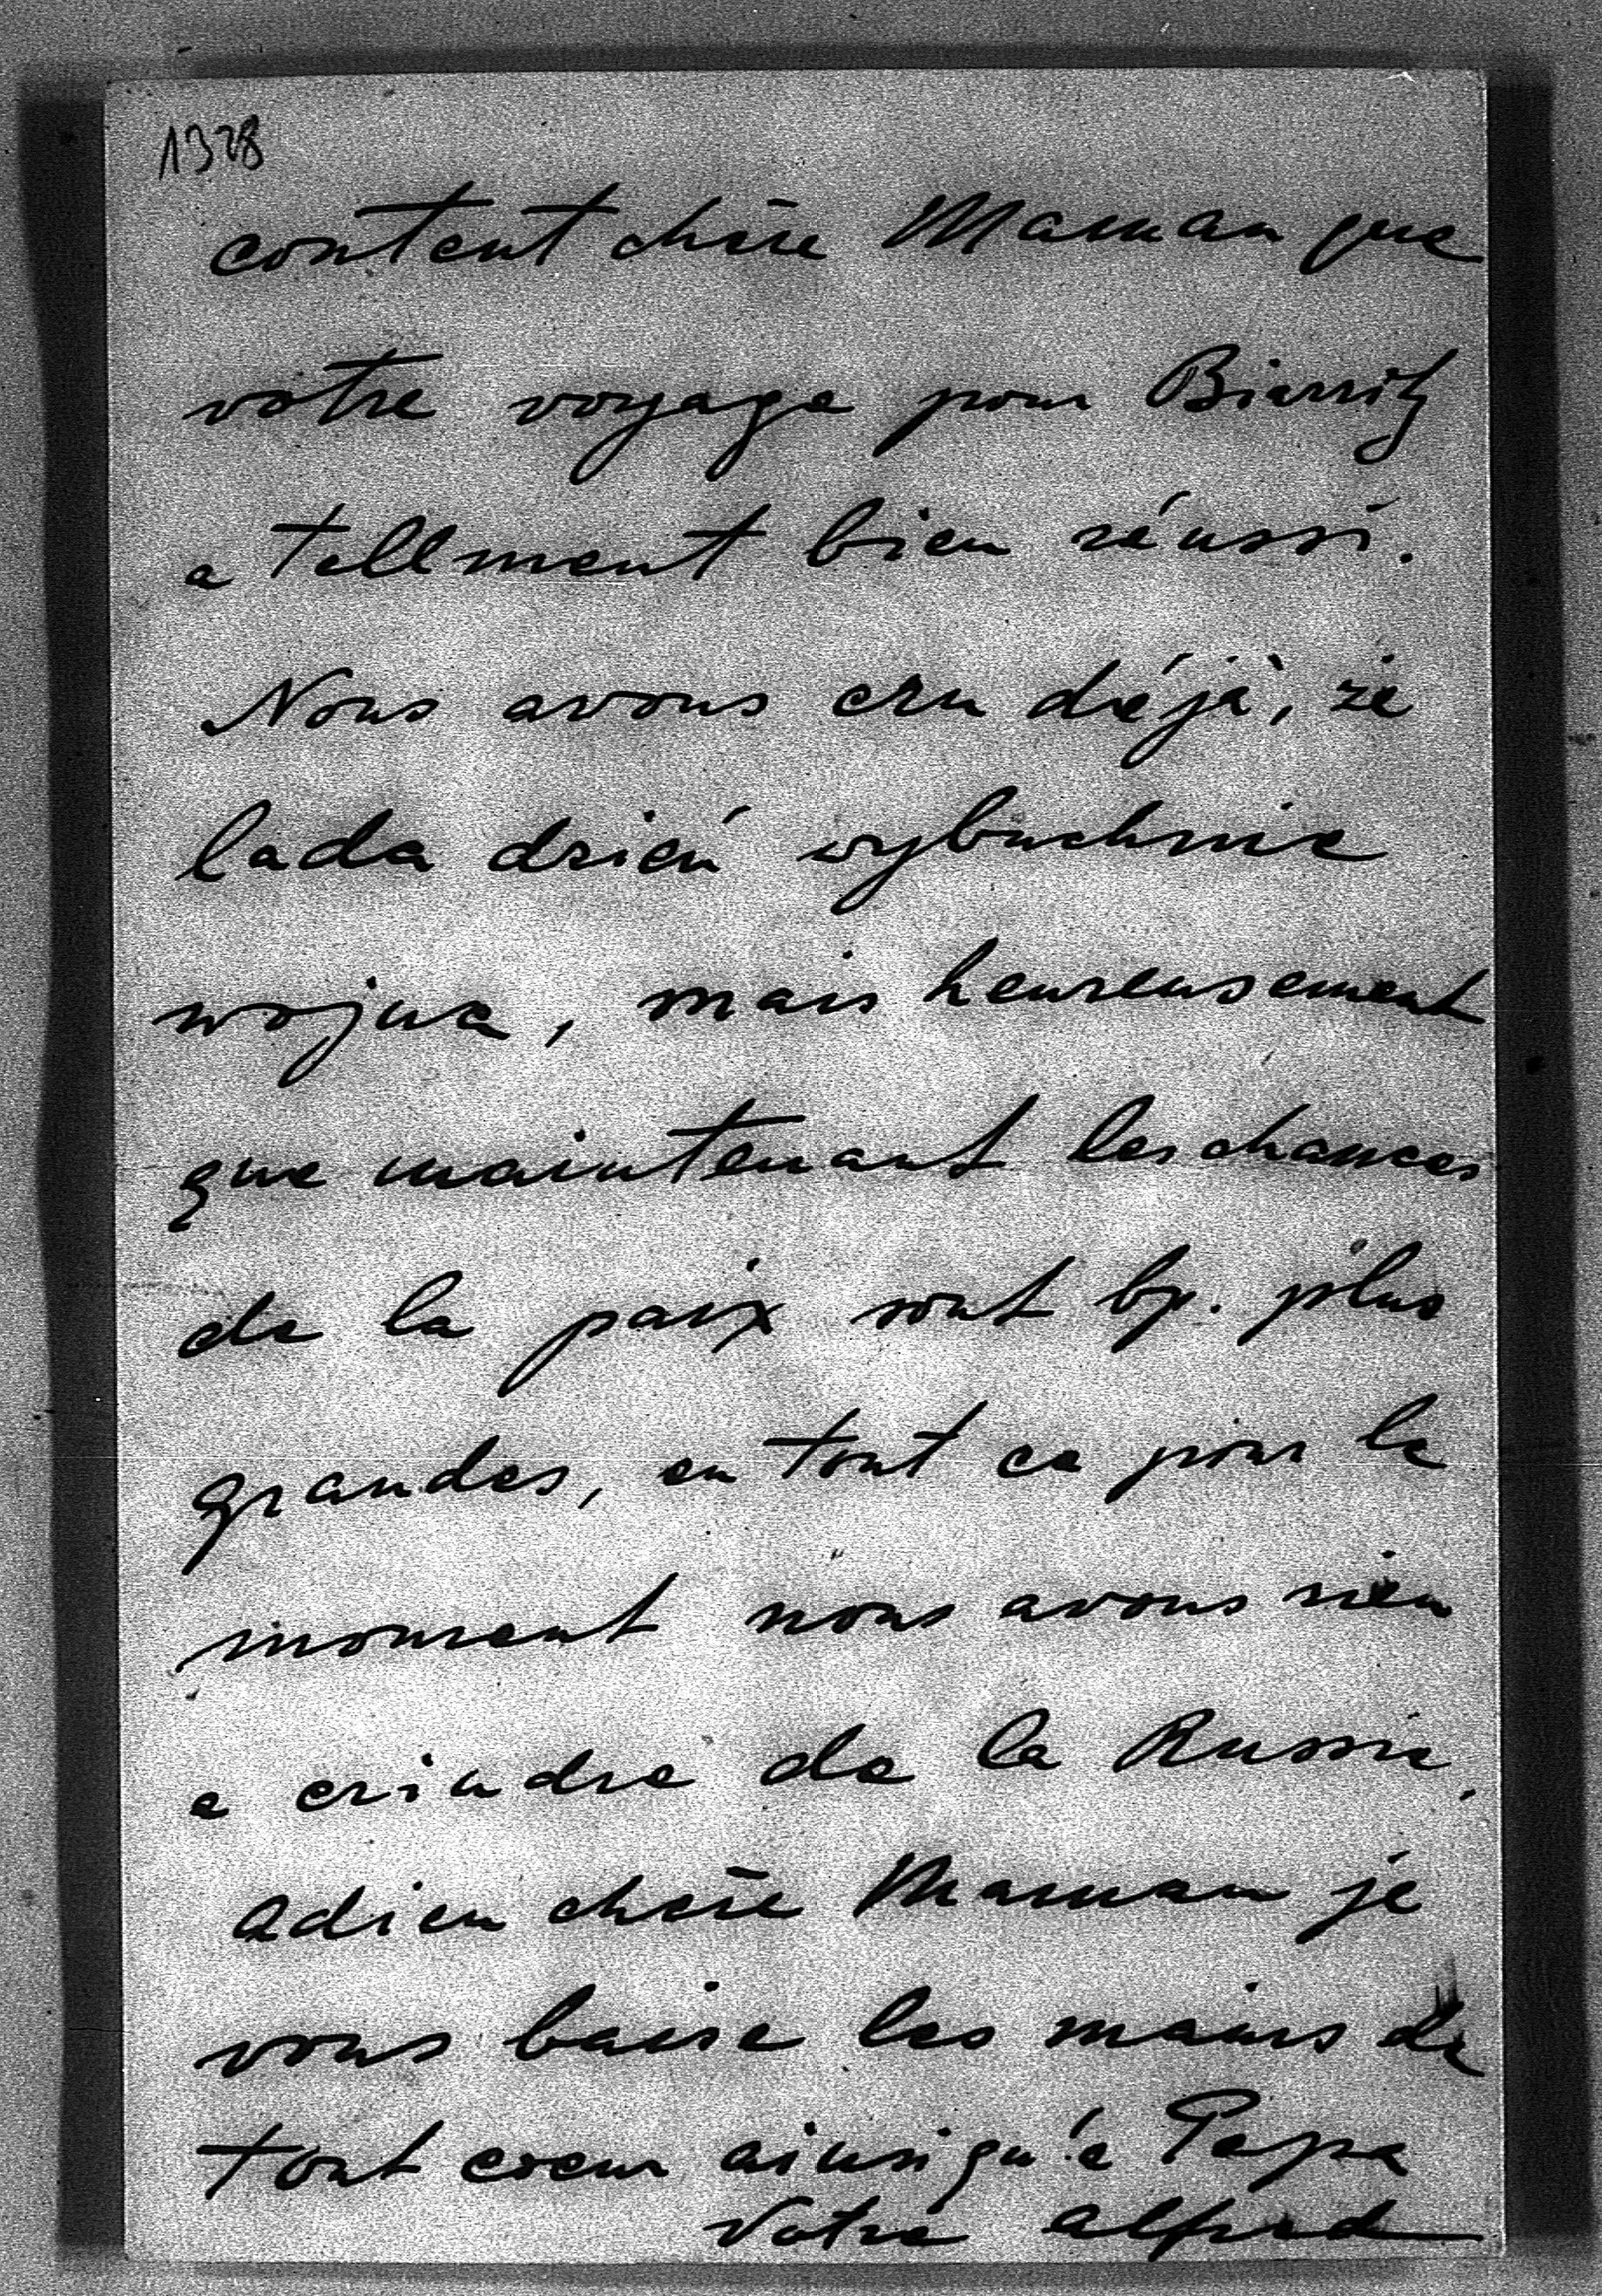 1328
content chère Maman que
votre voyage pour Biarritz
a tellment bien réussi.
Nous avons cru déjà, że
lada dzień wybuchnie
wojna, mais heureusement
que maintenant les chances
de la paix sont bp. plus
grandes, en tout ca pour le
moment nous avons rien
a crindre de la Russie.
Adieu chère Maman je
vous baise les mains de
tout coeur ainsi qu'à Papa
Votre Alfred